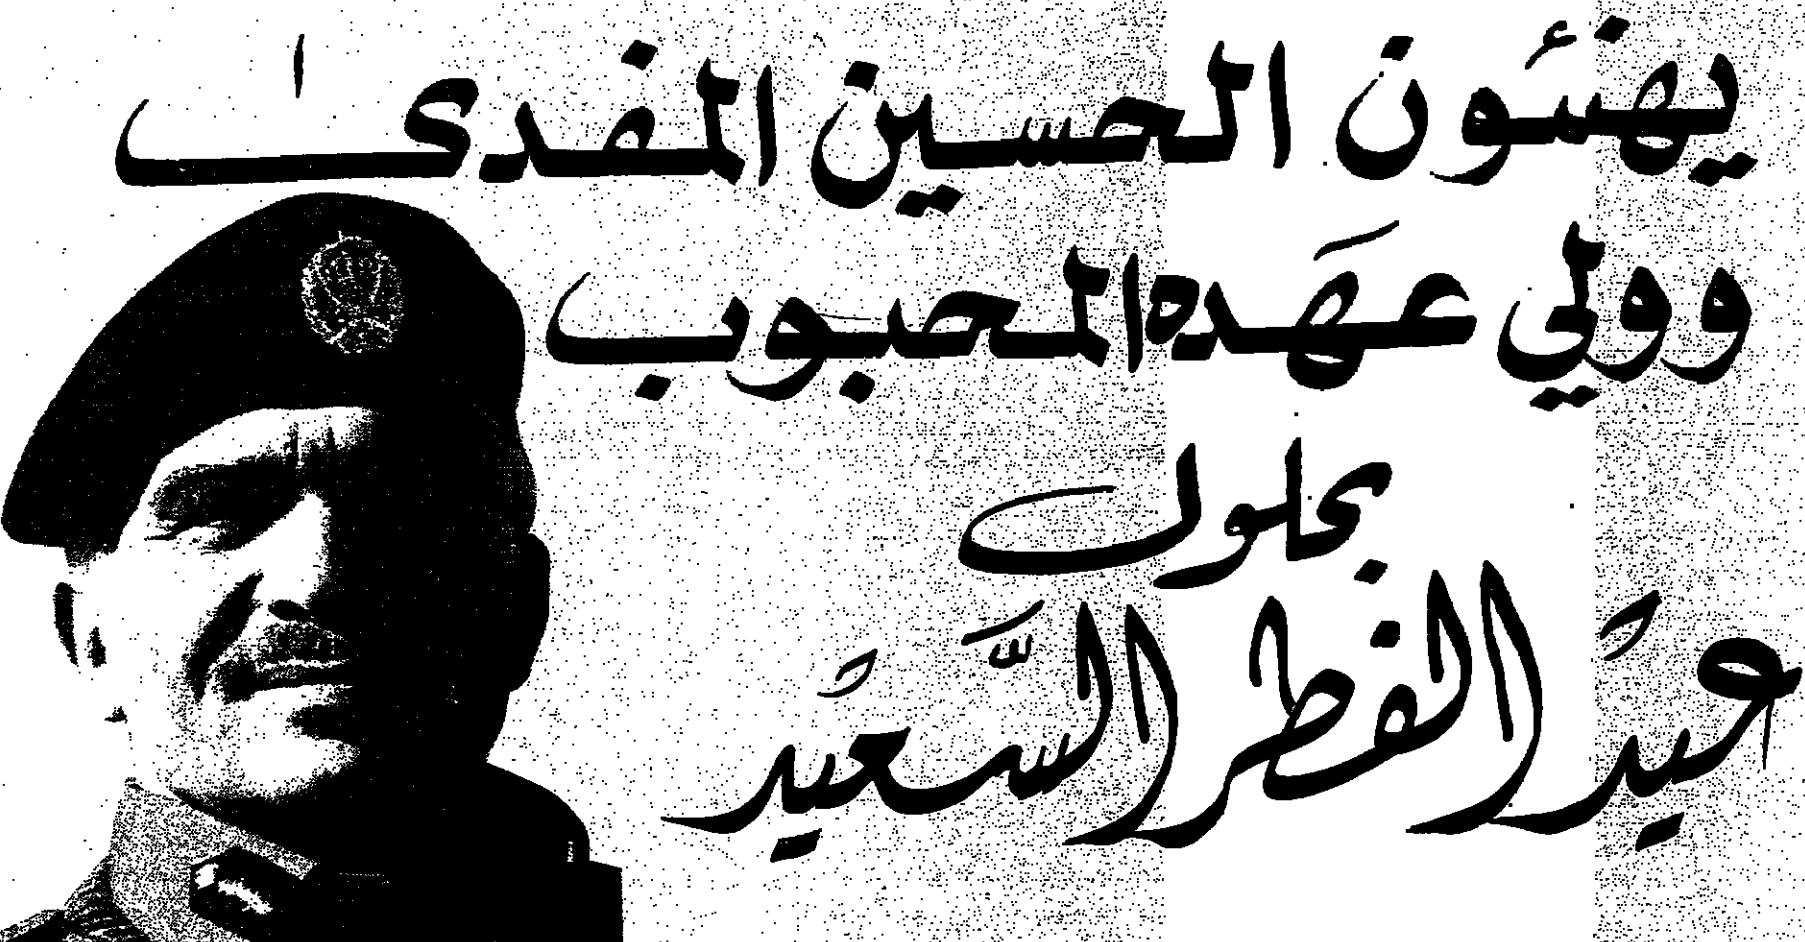 يهنئون الحسين المفدى
وولي عهده المحبوب
بحلول
عيد الفطر السَّعيد